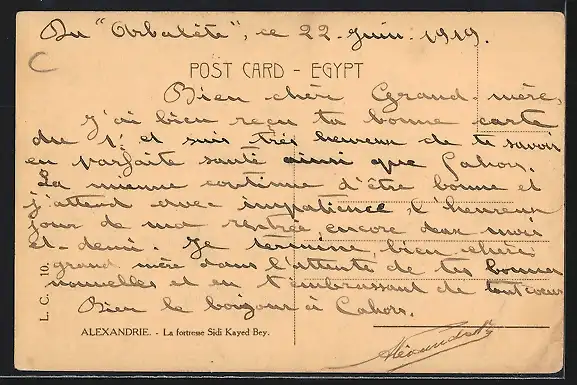 Du "Arbalète", ce 22-juin-1919.
C
POST CARD - EGYPT
Bien chère Grand-mère,
J'ai bien reçu ta bonne carte
du 1er et suis très heureux de te savoir
en parfaite santé ainsi que Cahors.
La mienne continue d'être bonne et
j'attend avec impatience, l'heureux
jour de ma rentrée, encore deux mois
et-demi. Je termine, bien chère
grand mère dans l'attente de tes bonnes
nouvelles et en t'embrassant de tout cœur
Bien le bonjour à Cahors.
L. C. 10.
ALEXANDRIE. - La forteresse Sidi Kayed Bey.